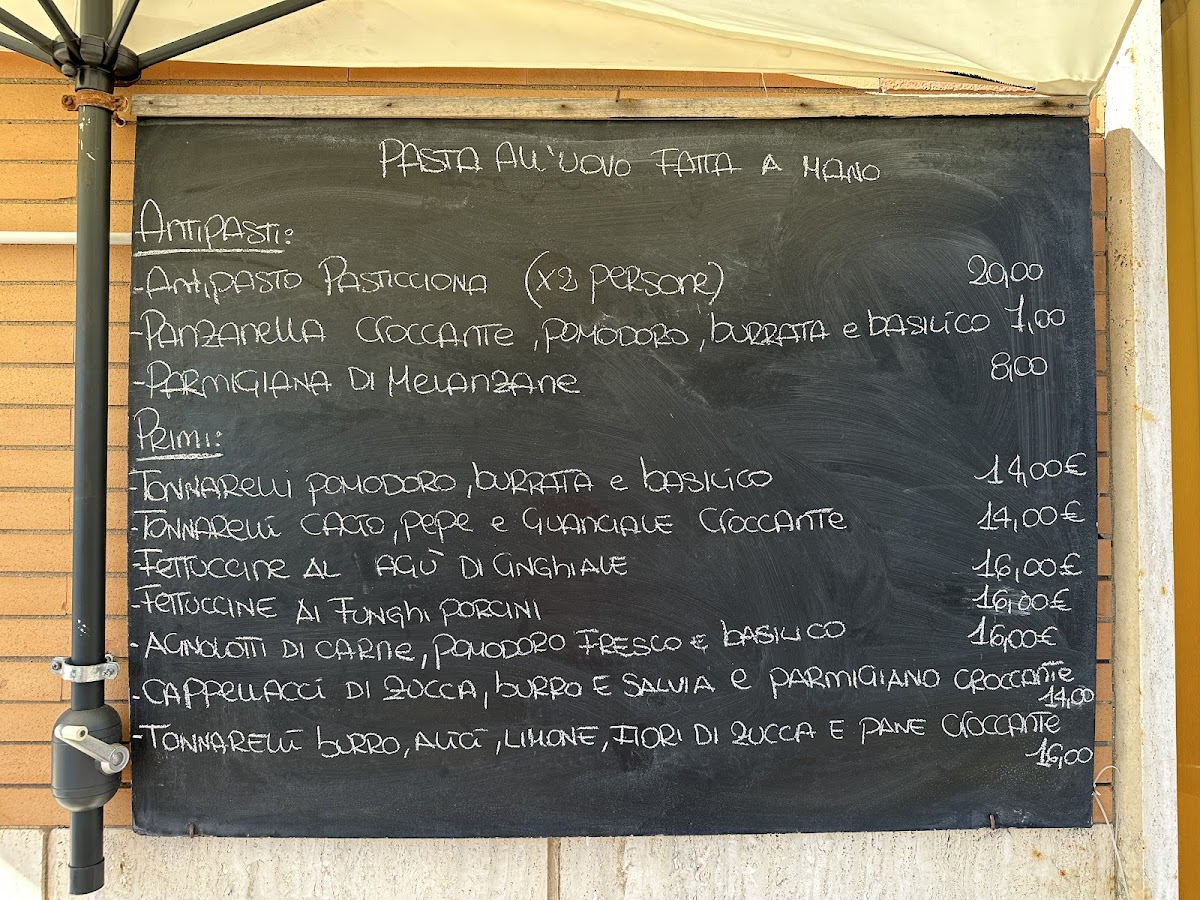 PASTA ALL'UOVO FATTA A MANO
ANTIPASTI:
-ANTIPASTO PASTICCIONA (x2 PERSONE) 20,00
-PANZANELLA CROCCANTE, POMODORO, BURRATA e BASILICO 7,00
-PARMIGIANA DI MELANZANE 8,00
PRIMI:
-TONNARELLI POMODORO, BURRATA e BASILICO 14,00€
-TONNARELLI CACIO, PEPE e GUANCIALE CROCCANTE 14,00€
-FETTUCCINE AL AGÙ DI CINGHIALE 16,00€
-FETTUCCINE AI FUNGHI PORCINI 16,00€
-AGNOLOTTI DI CARNE, POMODORO FRESCO e BASILICO 16,00€
-CAPPELLACCI DI ZUCCA, BURRO E SALVIA e PARMIGIANO CROCCANTE
14,00
-TONNARELLI BURRO, ALICI, LIMONE, FIORI DI ZUCCA E PANE CROCCANTE
16,00